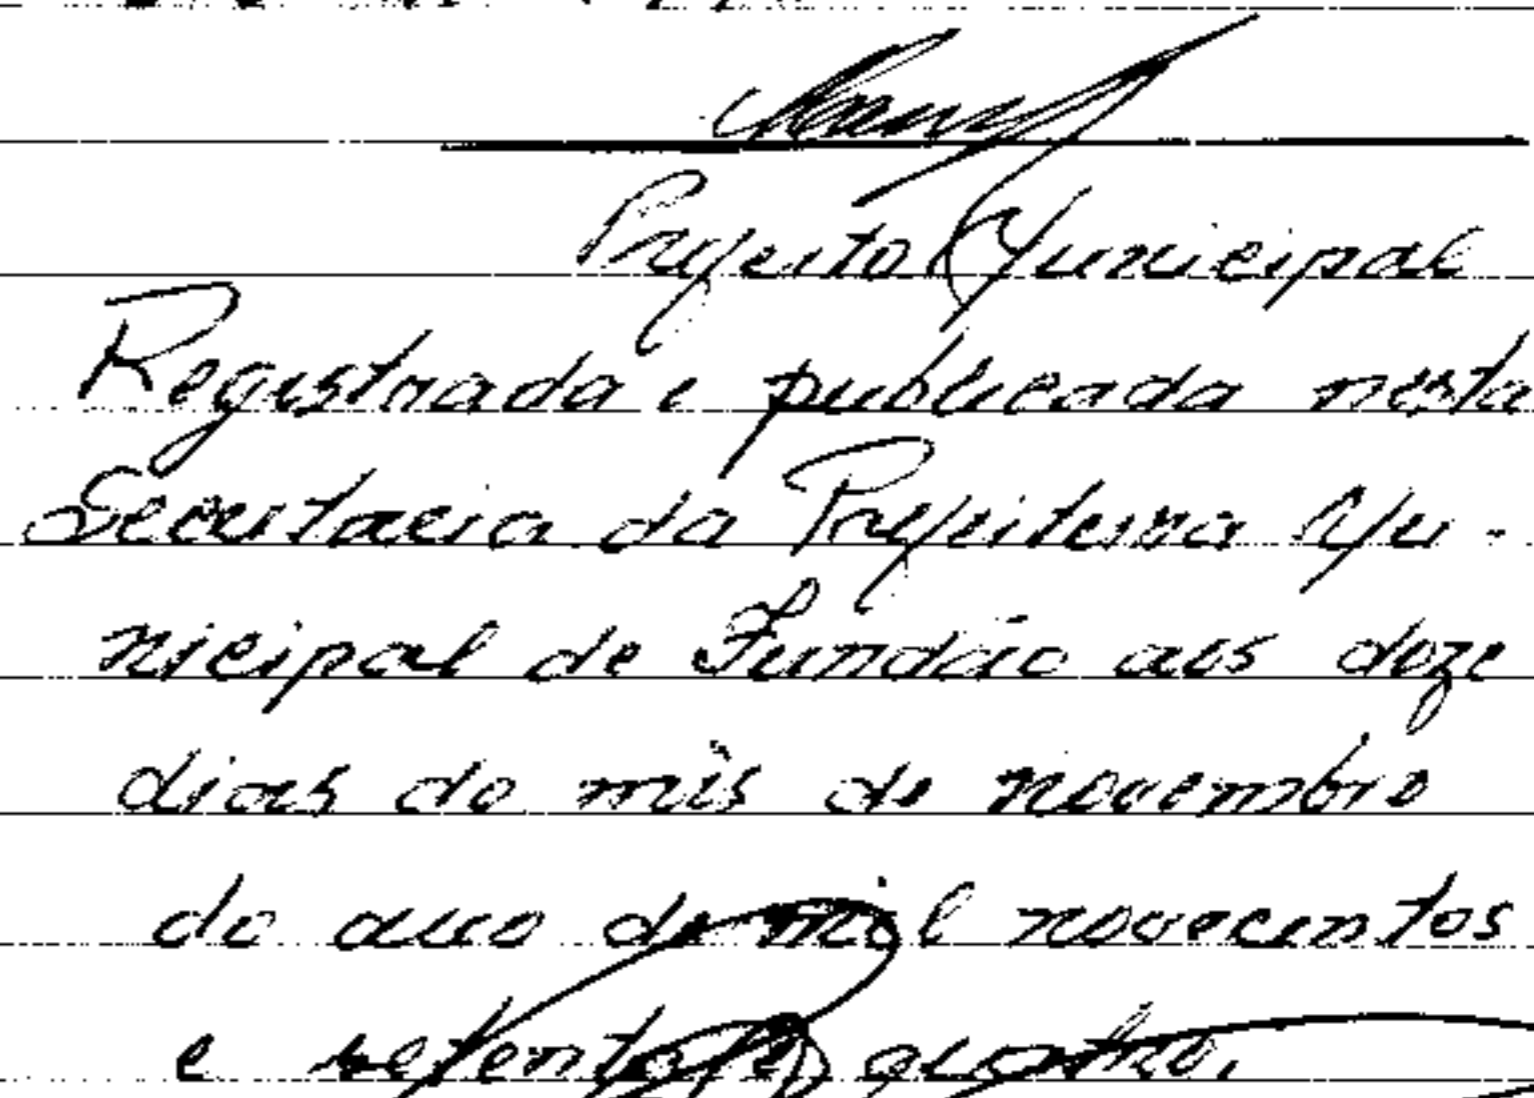 Prefeito Municipal
Registrada e publicada nesta
Secretaria da Prefeitura Mu-
nicipal de Fundão aos doze
dias do mês de novembro
do ano de mil novecentos
e setenta e quatro.